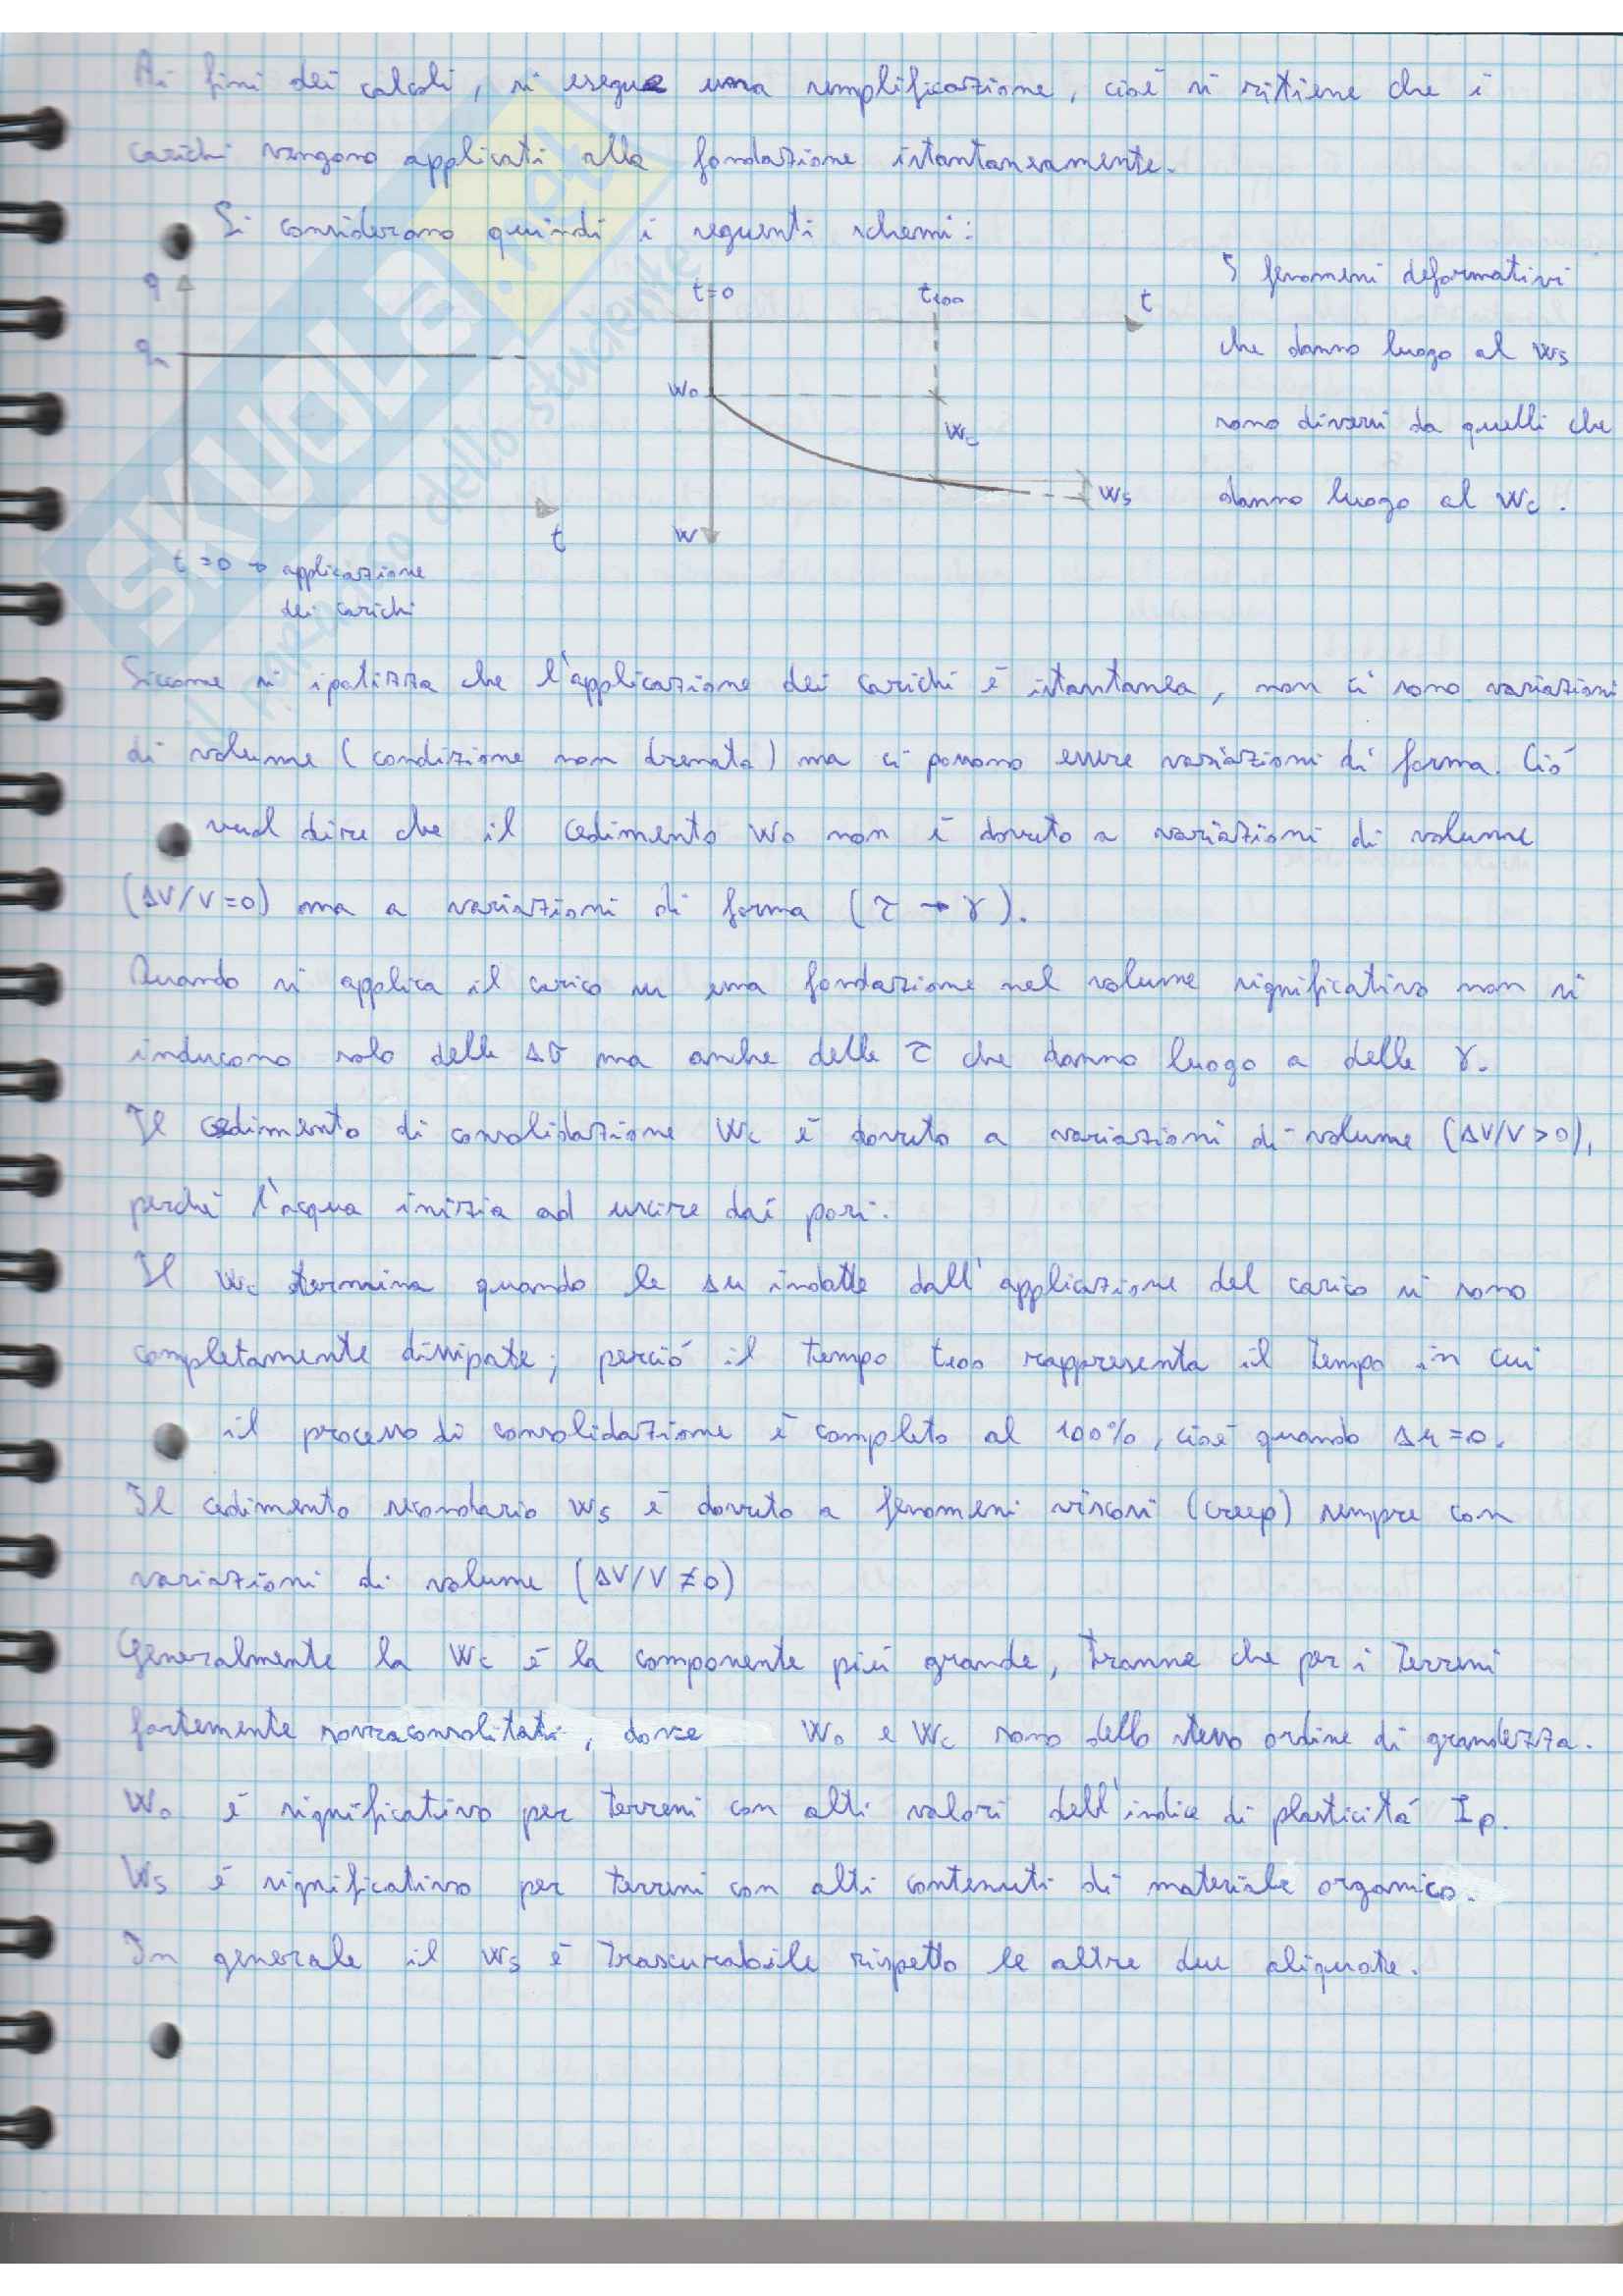 Ai fini dei calcoli, si esegue una semplificazione, cioé si ritiene che i
carichi vengono applicati alla fondazione istantaneamente.
Si considerano quindi i seguenti schemi:
q
q
t
t=0 → applicazione
dei carichi
t=0
t100
t
W0
Wc
Ws
W
I fenomeni deformativi
che danno luogo al Ws
sono diversi da quelli che
danno luogo al Wc.
Siccome si ipotizza che l'applicazione dei carichi é istantanea, non ci sono variazioni
di volume (condizione non drenata) ma ci possono essere variazioni di forma. Ció
vuol dire che il cedimento W0 non é dovuto a variazioni di volume
(ΔV/V=0) ma a variazioni di forma (τ → γ).
Quando si applica il carico su una fondazione nel volume significativo non si
inducono solo delle Δσ ma anche delle τ che danno luogo a delle γ.
Il cedimento di consolidazione Wc é dovuto a variazioni di volume (ΔV/V>0),
perché l'acqua inizia ad uscire dai pori.
Il Wc termina quando le Δu indotte dall'applicazione del carico si sono
completamente dissipate; perció il tempo t100 rappresenta il tempo in cui
il processo di consolidazione é completo al 100%, cioé quando Δu=0.
Il cedimento secondario Ws é dovuto a fenomeni viscosi (creep) sempre con
variazioni di volume (ΔV/V≠0)
Generalmente la Wc é la componente piú grande, tranne che per i terreni
fortemente sovraconsolitati, dove W0 e Wc sono dello stesso ordine di grandezza.
W0 é significativo per terreni con alti valori dell'indice di plasticitá Ip.
Ws é significativo per terreni con alti contenuti di materiale organico.
In generale il Ws é trascurabile rispetto le altre due aliquote.
SKUOLA.net
il paradiso dello studente